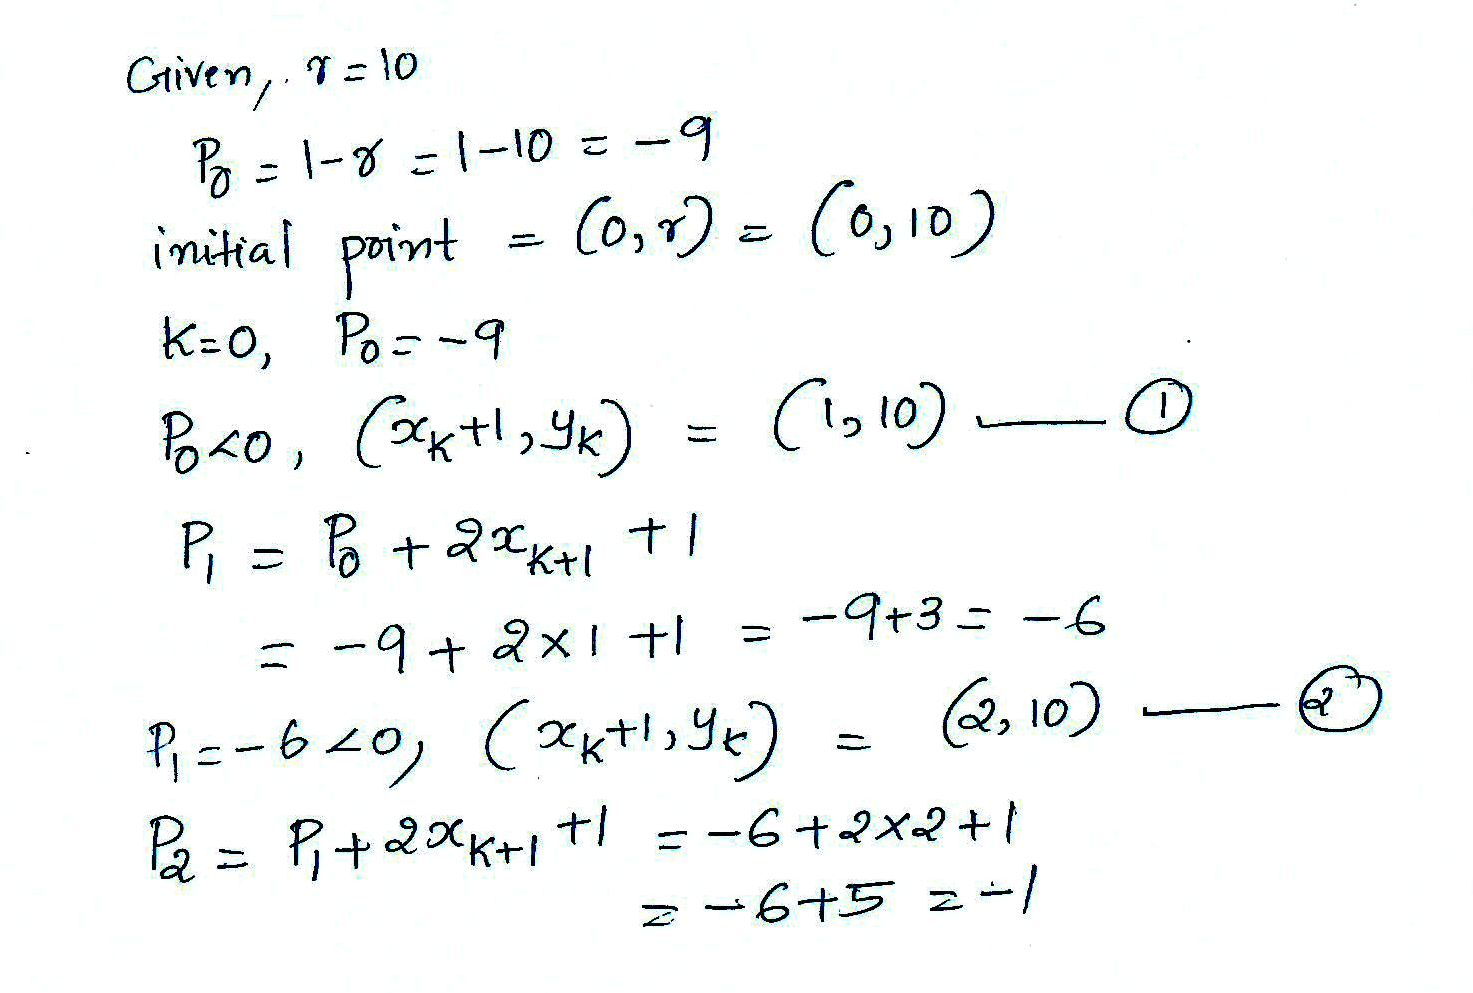 Given, r = 10
P₀ = 1-r = 1-10 = -9
initial point = (0, r) = (0, 10)
K=0, P₀ = -9
P₀<0, (xₖ+1, yₖ) = (1, 10) — ①
P₁ = P₀ + 2xₖ₊₁ + 1
= -9 + 2×1 +1 = -9+3 = -6
P₁ = -6 <0, (xₖ+1, yₖ) = (2, 10) — ②
P₂ = P₁ + 2xₖ₊₁ +1 = -6+2×2+1
= -6+5 = -1